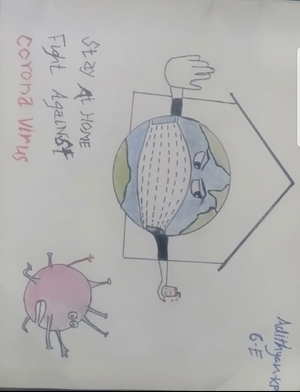 Stay At HOME
Fight AgAiNSt
Corona Virus
Adithyan KP
6-E